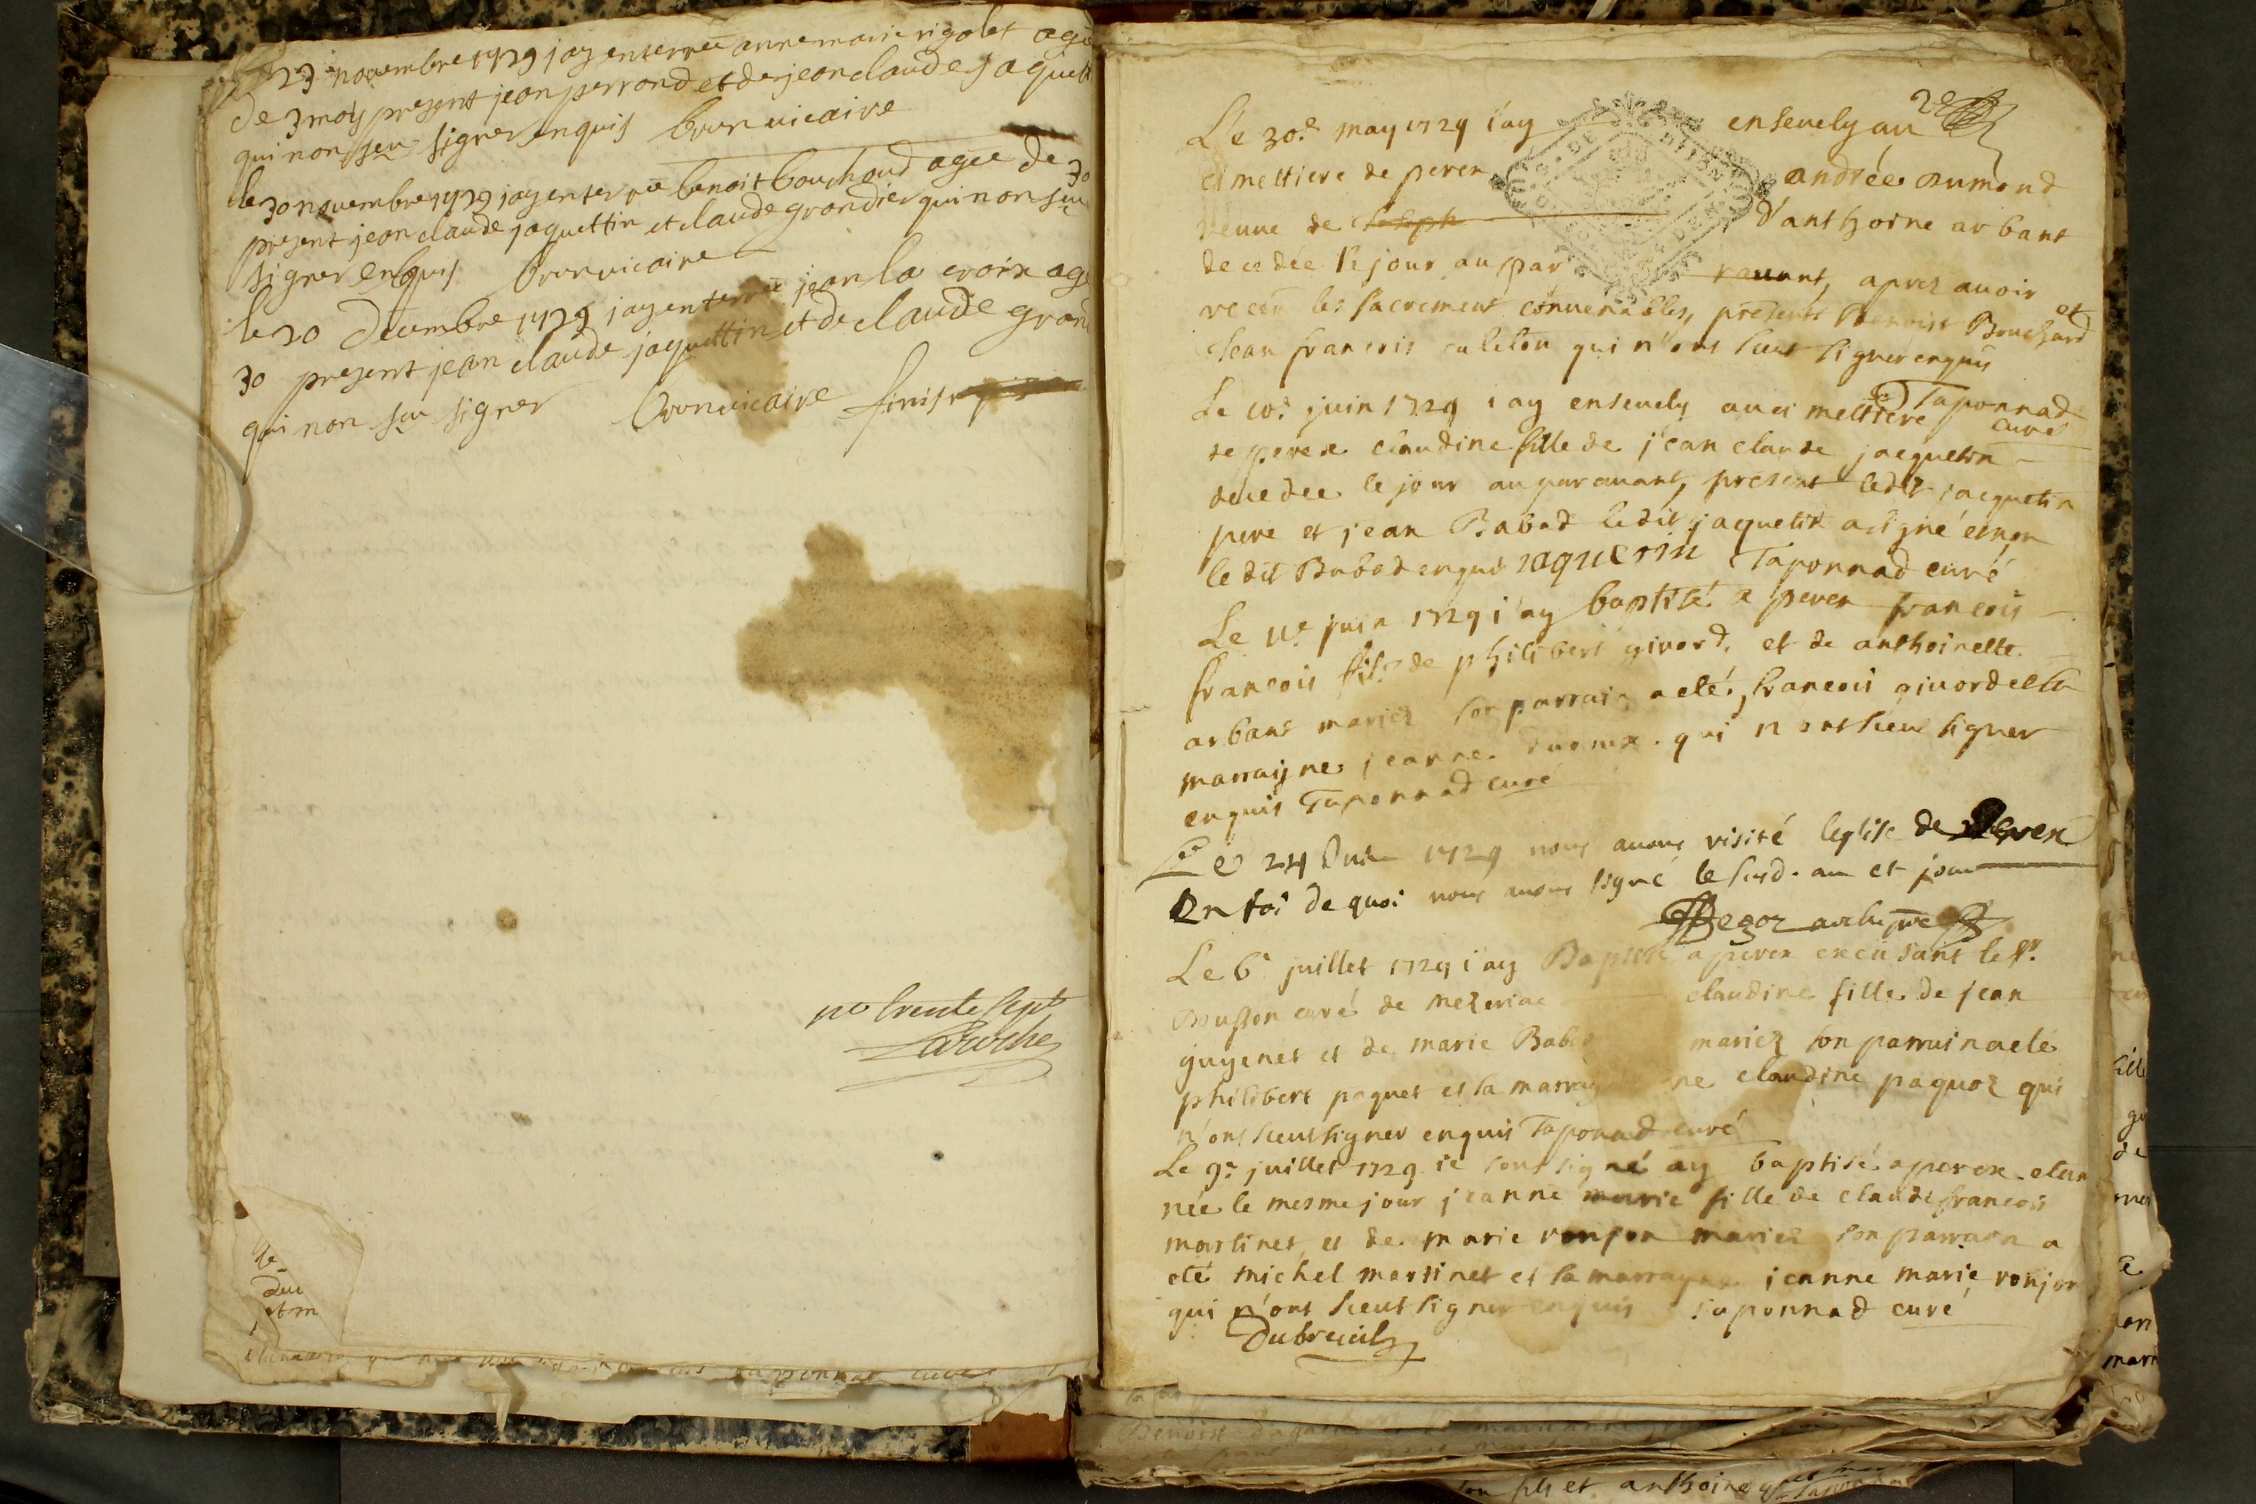 23 novembre 1729 jay enterrée anne marie rigolet agée
de 3 mois present jean perrond et de jean claude jaquett
qui non sçu signer enquis brun vicaire
le 30 novembre 1729 jay enterrée benoit bouchard agée de 30
present jean claude jaquettin et claude grandier qui non sçu
signer enquis brun vicaire
le 20 decembre 1729 jay enterrée jean la croix agé
30 present jean claude jaquettin et de claude grand
qui non sçu signer brun vicaire finis
no trente sept
Laroche
Le 30e may 1729 i'ay ensevely au 2e
cimettiere de perex andrée dumond
veuve de d'anthoine arbant
decedée le jour aupar ravant, aprez avoir
receu les sacrement convenables, présents Benoist Bouchard et
Jean francois culeton qui n'ont sceu signer enquis
Taponnad curé
Le 10e juin 1729 i'ay ensevely au cimettiere
de perex claudine fille de jean claude jacquetin
decedée le jour auparavant, present ledit jacquetin
pere et jean Babad ledit jaquetin a signé et non
le dit Babad enquis jaquetin Taponnad curé
Le 11e juin 1729 i'ay baptisé a perex francois
francois fils de philibert givord, et de anthoinette
arbant mariez son parrain a eté, francois givord et la
marraigne jeanne qui n'ont sceu signer
enquis Taponnad curé
Le 24 Juin 1729 nous avons visité leglise de Perex
En foi de quoi nous avons signé le susd. an et jour
archipre
Le 6e juillet 1729 i'ay Baptisé a perex en cu dant le Sr.
curé de mezeriac claudine fille de jean
guyenet et de marie Bab mariez son parrain a eté
philibert paquet et sa marray ne claudine paquoz qui
n'ont sceut signer enquis Taponad curé
Le 9e juillet 1729 ie soussigné ay baptisé a perex etan
née le mesme jour jeanne marie fille de claude francois
martinet, et de marie ronjon mariez son parrain a
eté michel martinet et sa marrayne jeanne marie ronjon
qui n'ont sceut signer enquis Taponnad curé
Dubreuil